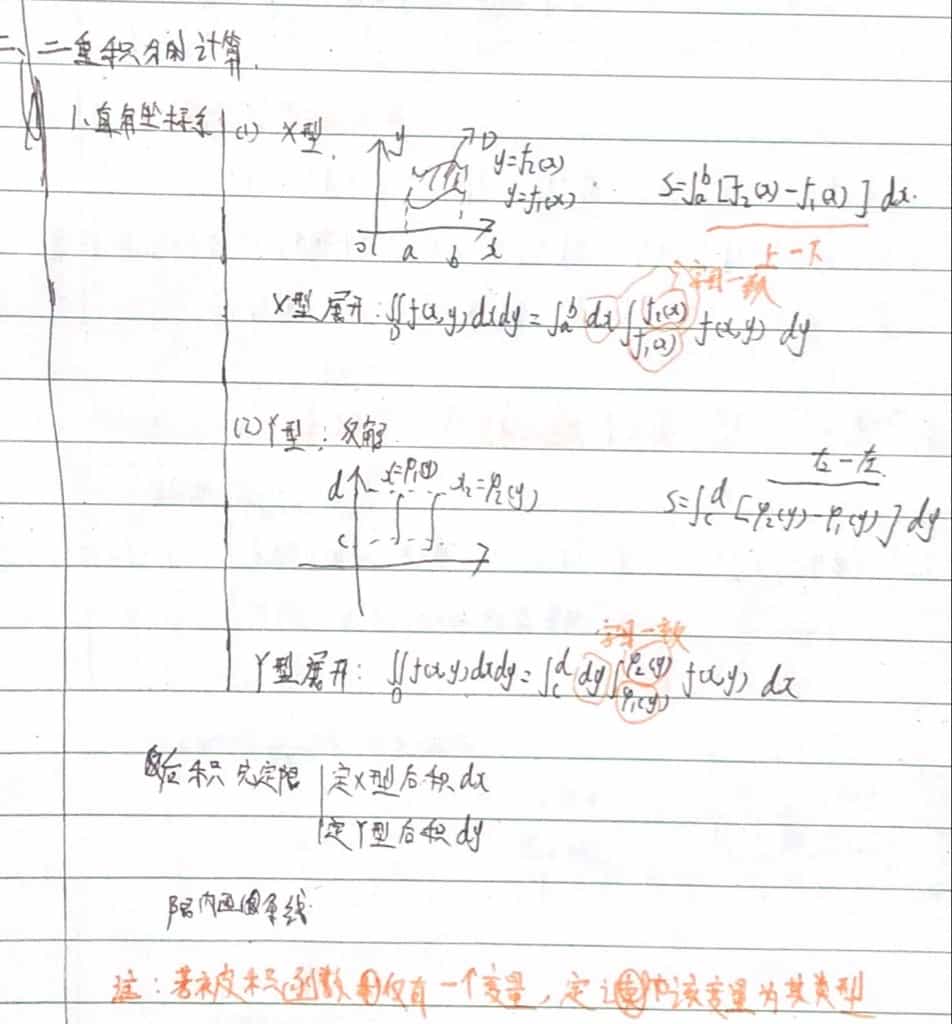 二、二重积分的计算.
1、直角坐标系 (1) X型.
y D
y=f₂(x)
y=f₁(x)
0 a b x
S=∫ₐᵇ[f₂(x)-f₁(x)]dx.
上一下
字母一致
X型展开:∬_D f(x,y)dxdy=∫ₐᵇdx∫_{f₁(x)}^{f₂(x)} f(x,y) dy
(2) Y型:反解
d x=φ₁(y) x₂=φ₂(y)
c
右-左
S=∫_c^d[φ₂(y)-φ₁(y)]dy
字母一致
Y型展开:∬_D f(x,y)dxdy=∫_c^d dy∫_{φ₁(y)}^{φ₂(y)} f(x,y) dx
后积先定限 定X型后积dx
定Y型后积dy
限内画条线
注:若被积函数仅有一个变量,定该变量为其类型